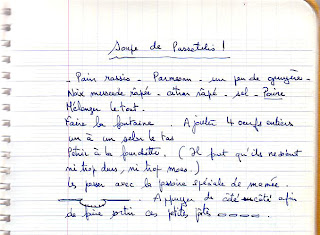 Soupe de Passetelis !
- Pain rassis - Parmesan - un peu de gruyère -
Noix muscade râpée - citron râpé - sel - Poivre
Mélanger le tout.
Faire la fontaine. Ajouter 4 oeufs entiers
un à un selon le tas
Pétrir à la fourchette. (Il faut qu'ils ne soient
ni trop durs, ni trop mous.)
les passer avec la passoire spéciale de mamée.
Appuyer de côté
de faire sortir ces petites pâtes